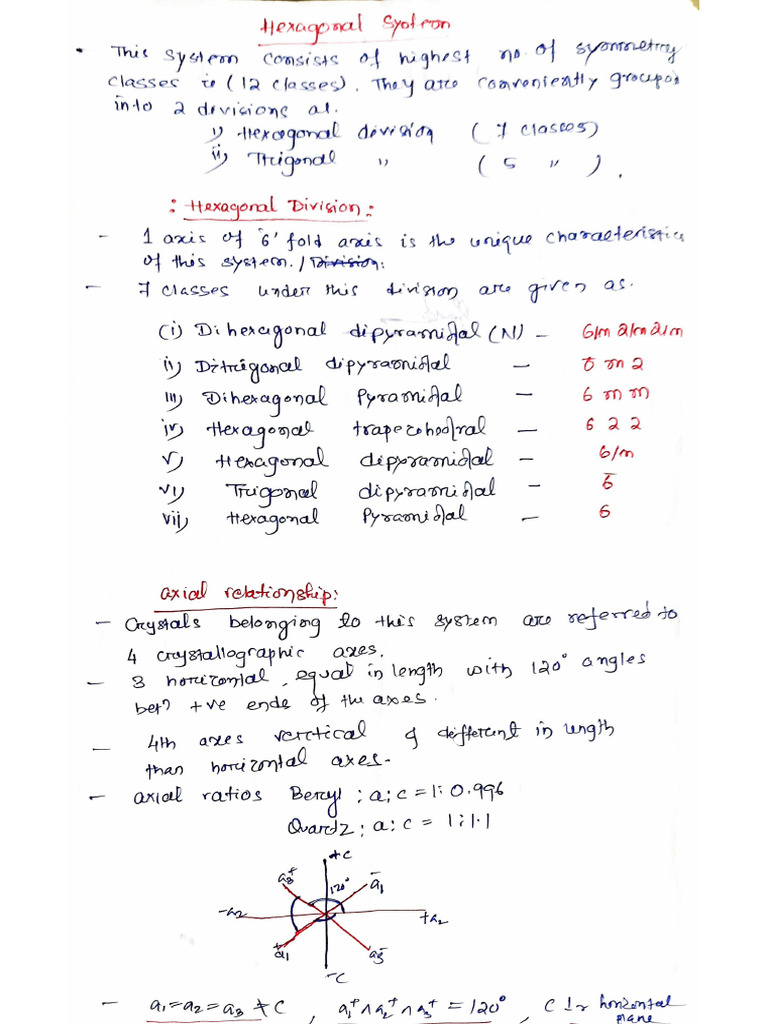 Hexagonal System
• This system consists of highest no. of symmetry
classes ie (12 classes). They are conveniently grouped
into 2 divisions as.
i) Hexagonal division (7 classes)
ii) Trigonal " (5 " ).
: Hexagonal Division :
- 1 axis of '6' fold axis is the unique characteristics
of this system. / Division:
- 7 classes under this division are given as.
(i) Dihexagonal dipyramidal (N) - 6/m 2/m 2/m
ii) Ditrigonal dipyramidal - 6̅ m 2
iii) Dihexagonal Pyramidal - 6 m m
iv) Hexagonal trapezohedral - 6 2 2
v) Hexagonal dipyramidal - 6/m
vi) Trigonal dipyramidal - 6̅
vii) Hexagonal Pyramidal - 6
axial relationship:
- Crystals belonging to this system are referred to
4 crystallographic axes.
- 3 horizontal, equal in length with 120° angles
betn +ve ends of the axes.
- 4th axes vertical & different in length
than horizontal axes.
- axial ratios Beryl ; a:c = 1: 0.996
Quartz ; a:c = 1:1.1
+c
a3+ 120° a̅1
-a2 +a2
a1+ a3-
-c
- a1=a2=a3 ≠ c , a1+ ∧ a2+ ∧ a3+ = 120° , c ⊥r horizontal
plane